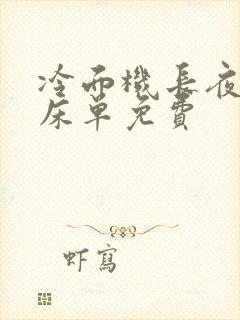 冷面機長夜
床單免費
虾寫